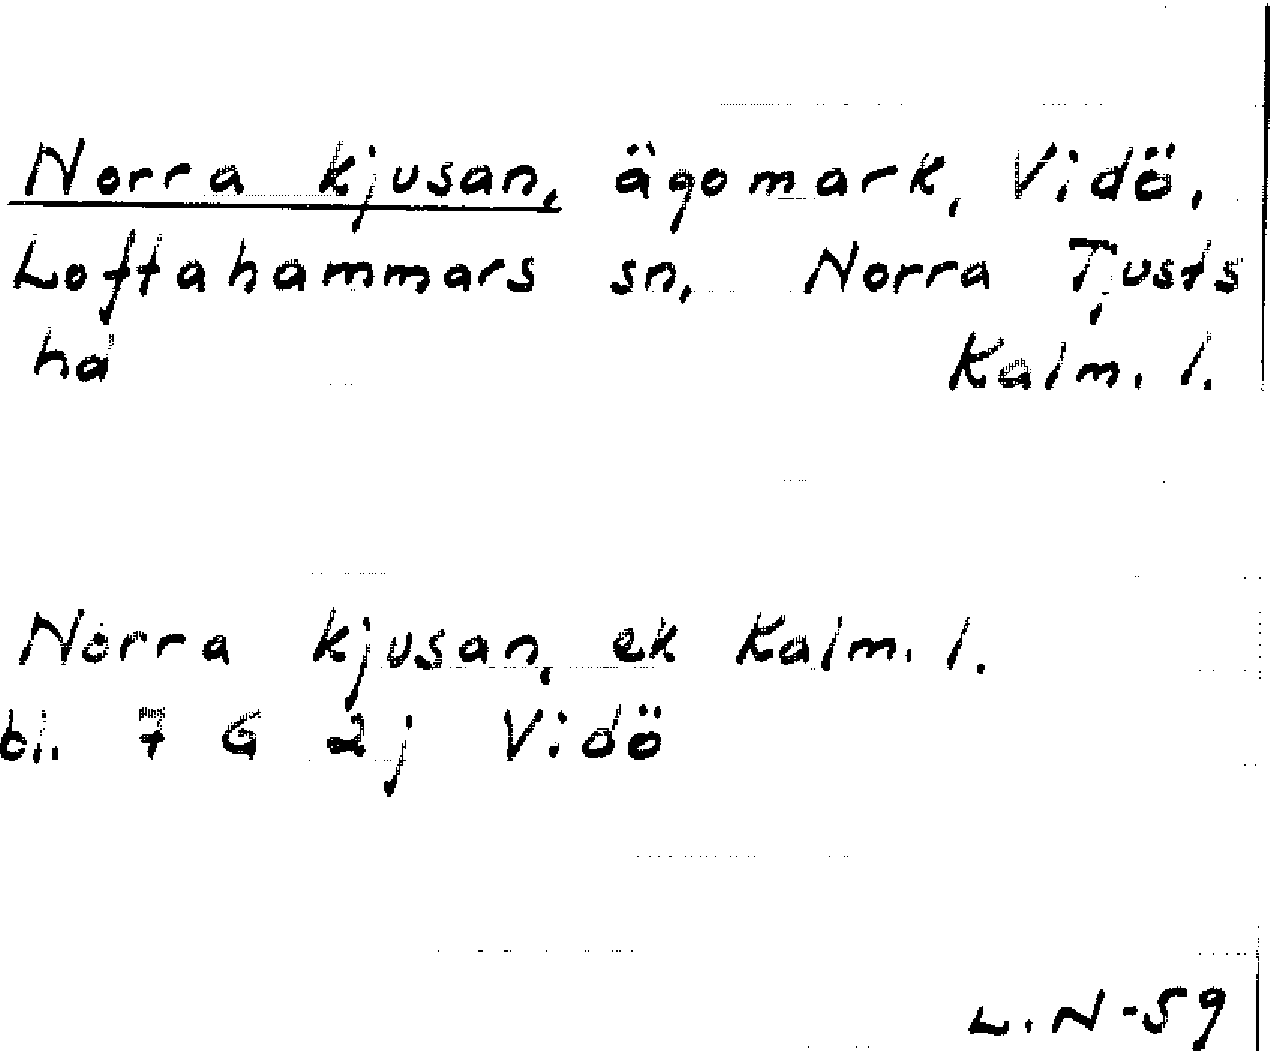 Norra kjusan, ägomark, Vidö,
Loftahammars sn, Norra Tjusts
hd Kalm. l.
Norra kjusan, ek Kalm. l.
bl. 7 G 2j Vidö
L. N-59